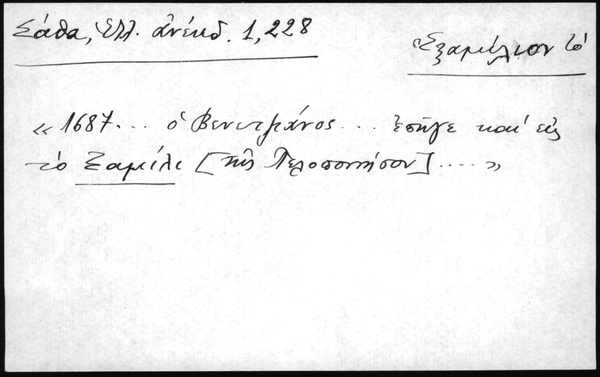 Σάθα, Ἑλλ. ἀνέκδ. 1, 228
Ἑξαμίλιον τό
« 1687... ὁ Βενετζιάνος... ἐπῆγε καὶ εἰς
τὸ Ξαμίλι [τῆς Πελοποννήσου] .... »